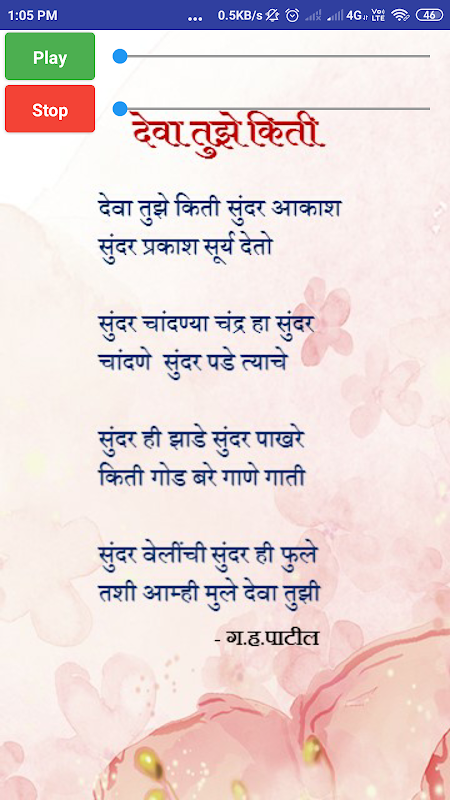 1:05 PM ... 0.5KB/s 4G Vo LTE 46
Play
Stop
देवा तुझे किती
देवा तुझे किती सुंदर आकाश
सुंदर प्रकाश सूर्य देतो
सुंदर चांदण्या चंद्र हा सुंदर
चांदणे सुंदर पडे त्याचे
सुंदर ही झाडे सुंदर पाखरे
किती गोड बरे गाणे गाती
सुंदर वेलींची सुंदर ही फुले
तशी आम्ही मुले देवा तुझी
- ग.ह.पाटील